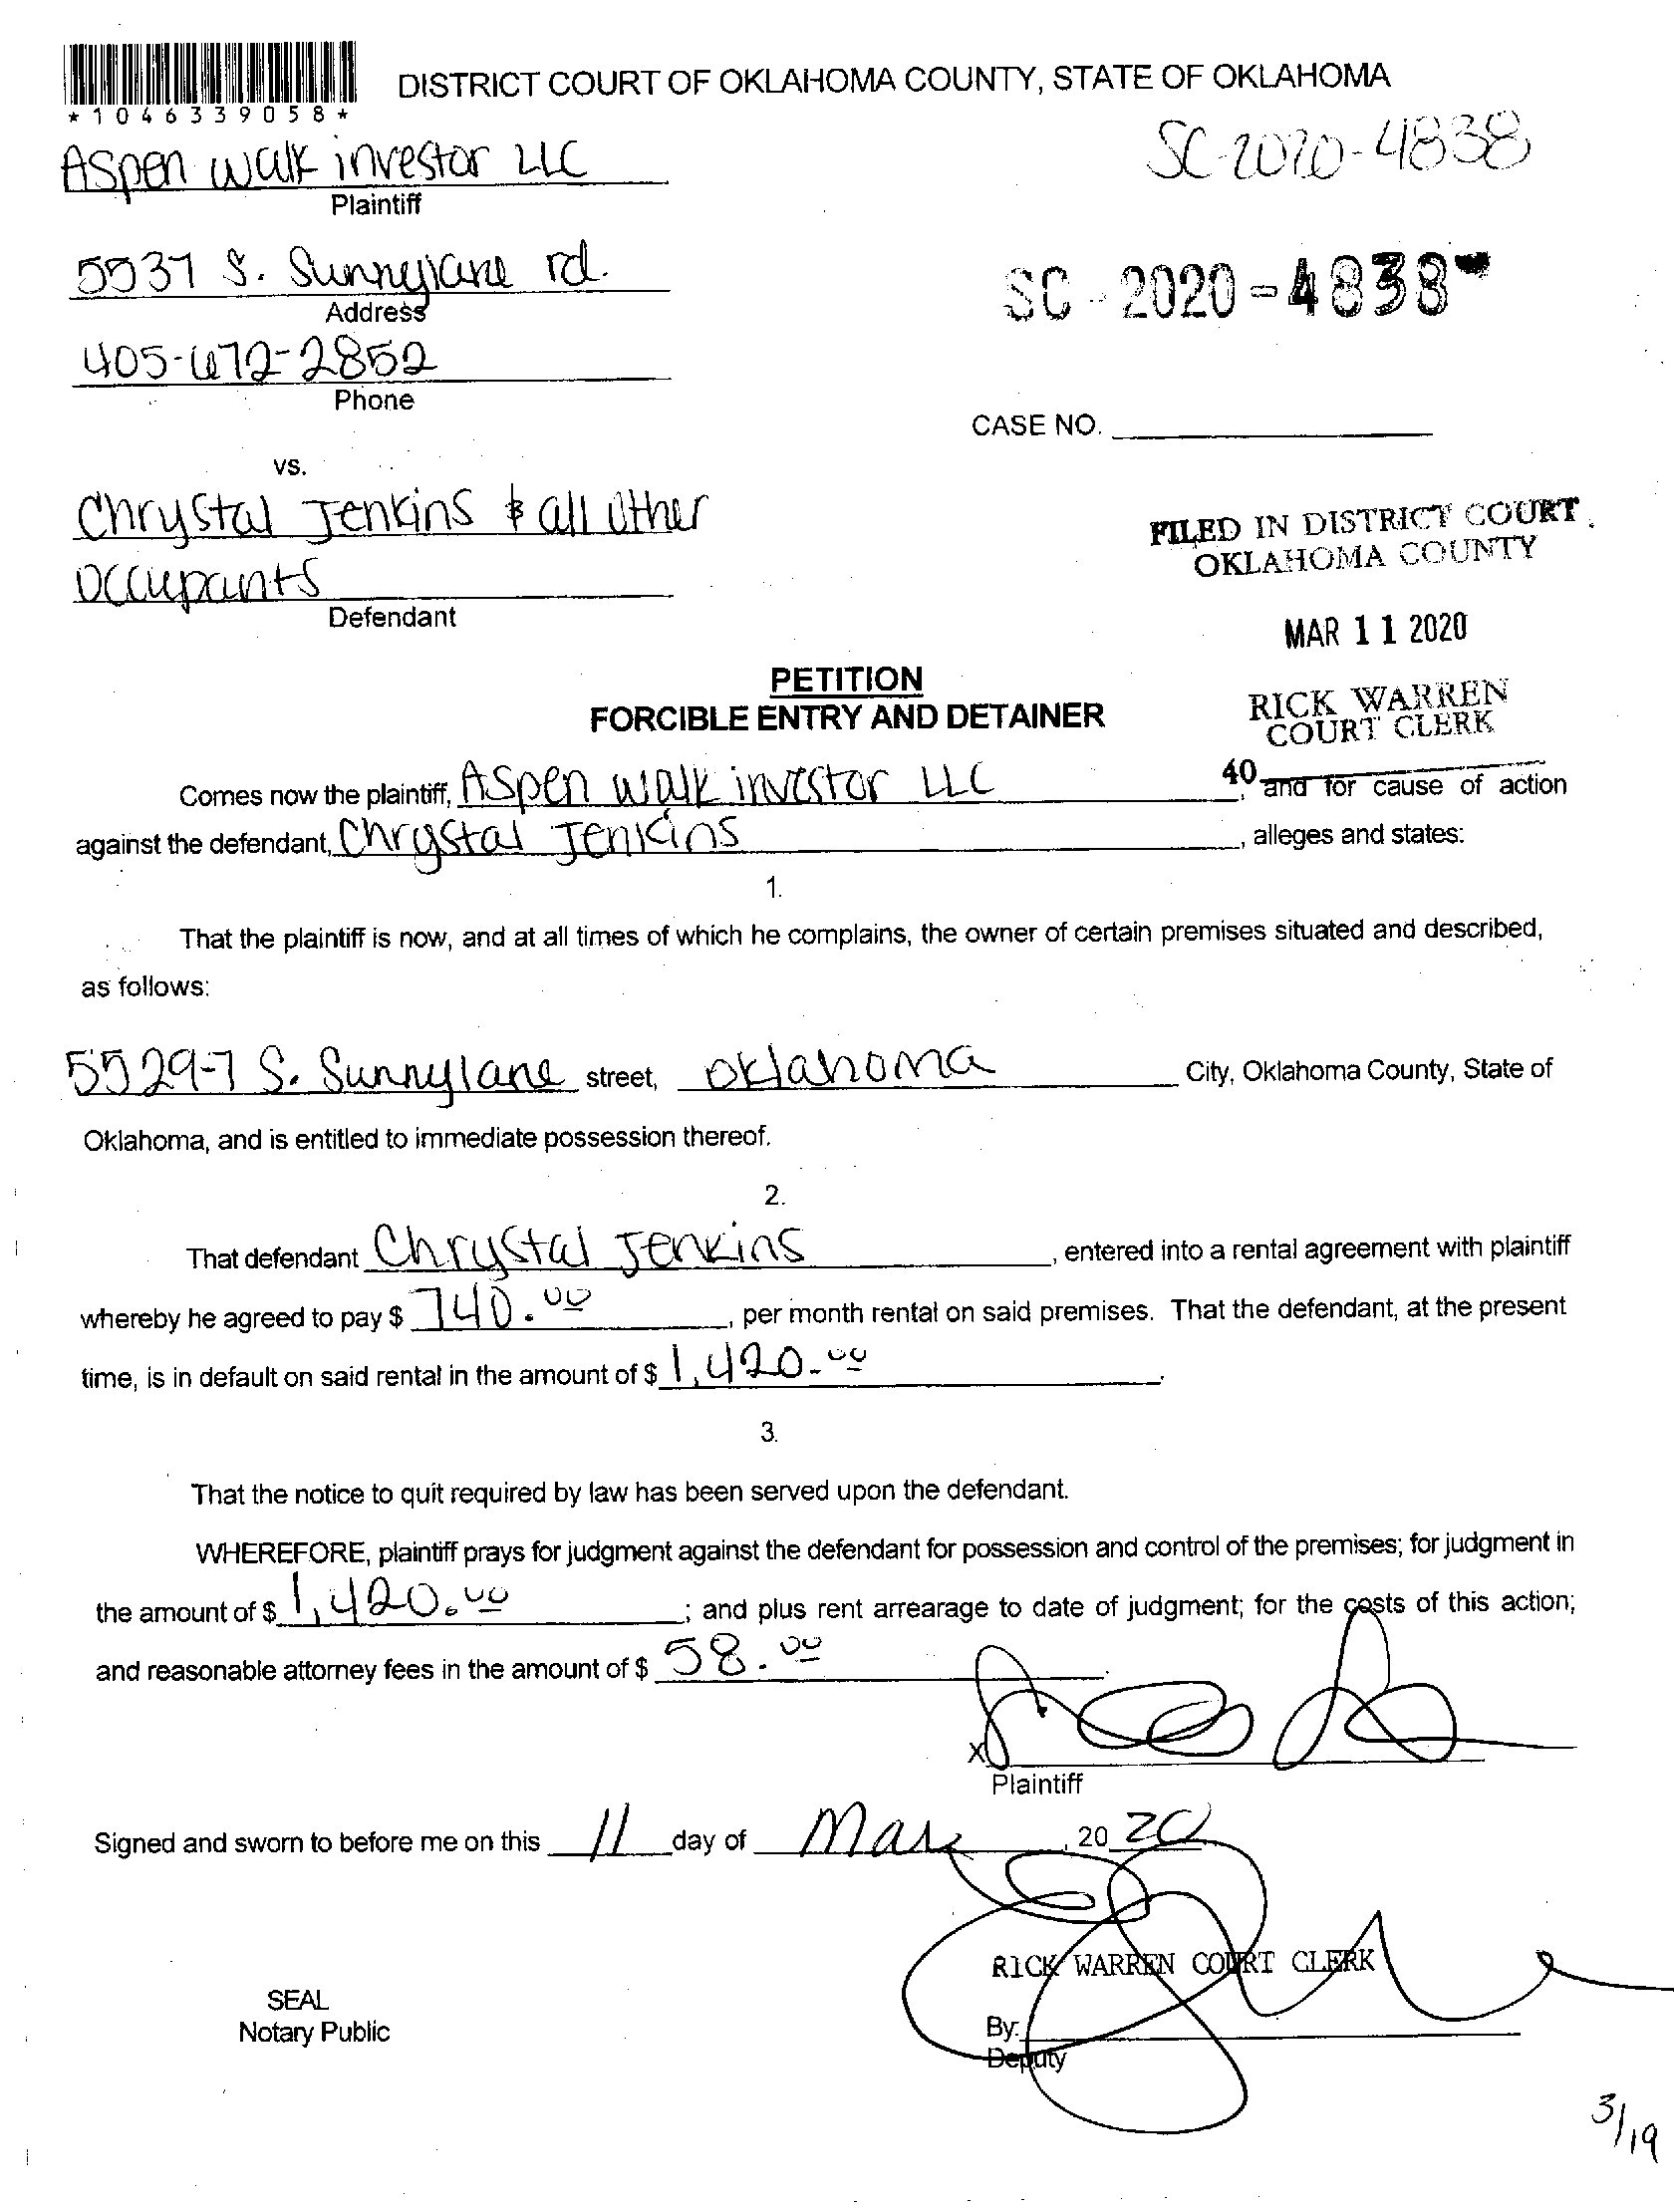 *1046339058*
DISTRICT COURT OF OKLAHOMA COUNTY, STATE OF OKLAHOMA
SC-2020-4838
Aspen walk investor LLC
Plaintiff
5537 S. Sunnylane rd.
Address
SC-2020-4838
405-672-2852
Phone
CASE NO.
vs.
Chrystal Jenkins & all other
occupants
Defendant
FILED IN DISTRICT COURT
OKLAHOMA COUNTY
MAR 11 2020
RICK WARREN
COURT CLERK
40
PETITION
FORCIBLE ENTRY AND DETAINER
Comes now the plaintiff, Aspen walk investor LLC, and for cause of action
against the defendant, Chrystal Jenkins, alleges and states:
1.
That the plaintiff is now, and at all times of which he complains, the owner of certain premises situated and described,
as follows:
5529-7 S. Sunnylane street, Oklahoma City, Oklahoma County, State of
Oklahoma, and is entitled to immediate possession thereof.
2.
That defendant Chrystal Jenkins, entered into a rental agreement with plaintiff
whereby he agreed to pay $ 740.00, per month rental on said premises. That the defendant, at the present
time, is in default on said rental in the amount of $ 1,420.00.
3.
That the notice to quit required by law has been served upon the defendant.
WHEREFORE, plaintiff prays for judgment against the defendant for possession and control of the premises; for judgment in
the amount of $ 1,420.00; and plus rent arrearage to date of judgment; for the costs of this action;
and reasonable attorney fees in the amount of $ 58.00.
X
Plaintiff
Signed and sworn to before me on this 11 day of Mar, 2020
RICK WARREN COURT CLERK
SEAL
Notary Public
By:
Deputy
3/19